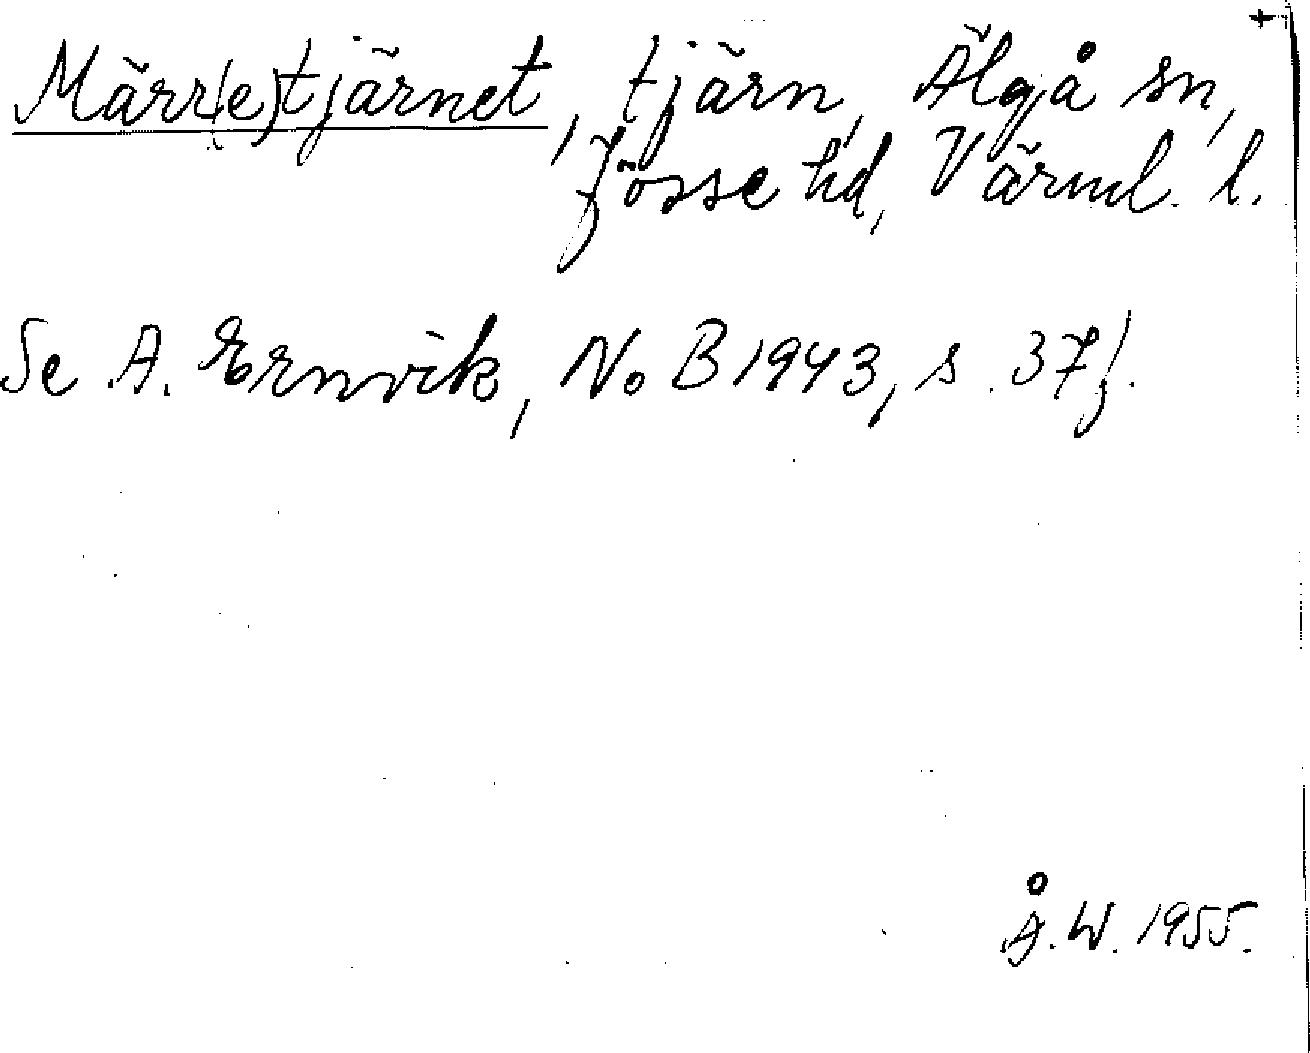 Märr(e)tjärnet, tjärn, Älgå sn,
Jösse hd, Värml. l.
Se A. Ernvik, NoB 1943, s. 37f.
Å. W. 1955.